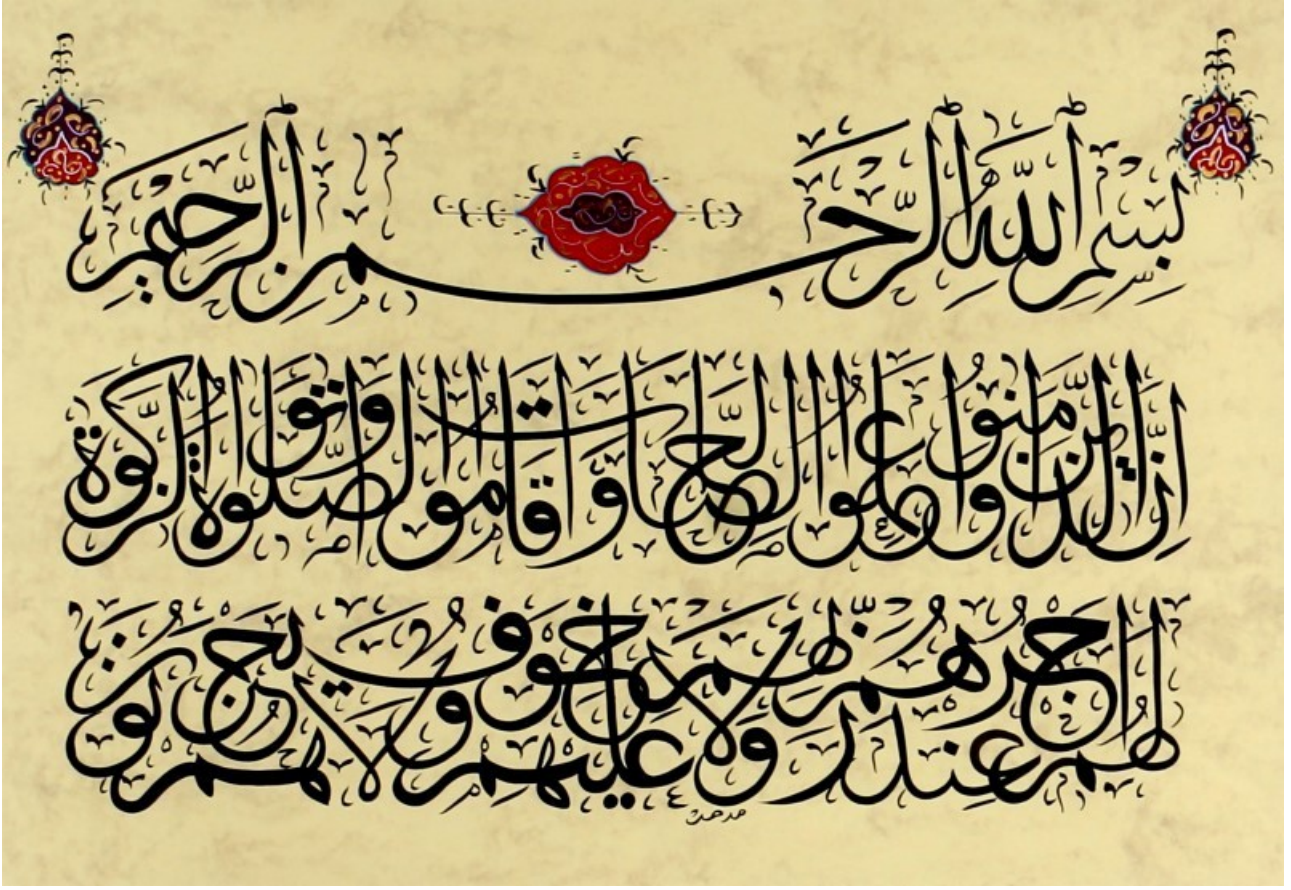 بسم الله الرحمن الرحيم
ان الذين امنوا وعملوا الصالحات واقاموا الصلوة واتوا الزكوة
لهم اجرهم عند ربهم ولا خوف عليهم ولا هم يحزنون